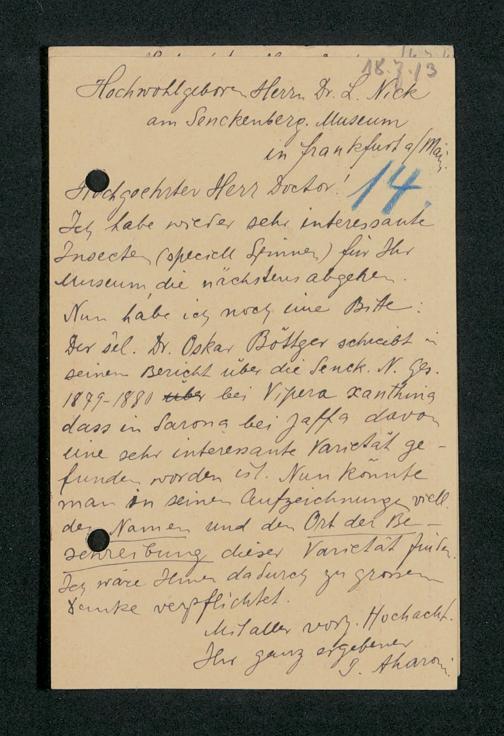 18.7.13
Hochwohlgeboren Herrn Dr. L. Nick
am Senckenberg. Museum
in Frankfurt a/Main
Hochgeehrter Herr Doctor!
14.
Ich habe wieder sehr interessante
Insecten (speciell Spinnen) für Ihr
Museum, die nächstens abgehen.
Nun habe ich noch eine Bitte:
Der sel. Dr. Oskar Böttger schreibt in
seinem Bericht über die Senck. N. Ges.
1879-1880 über bei Vipera xanthina
dass in Sarona bei Jaffa davon
eine sehr interessante Varietät ge-
funden worden ist. Nun könnte
man in seinen Aufzeichnungen viell.
den Namen und den Ort der Be-
schreibung dieser Varietät finden.
Ich wäre Ihnen dadurch zu grossem
Danke verpflichtet.
Mit aller vorz. Hochacht.
Ihr ganz ergebener
J. Aharoni.